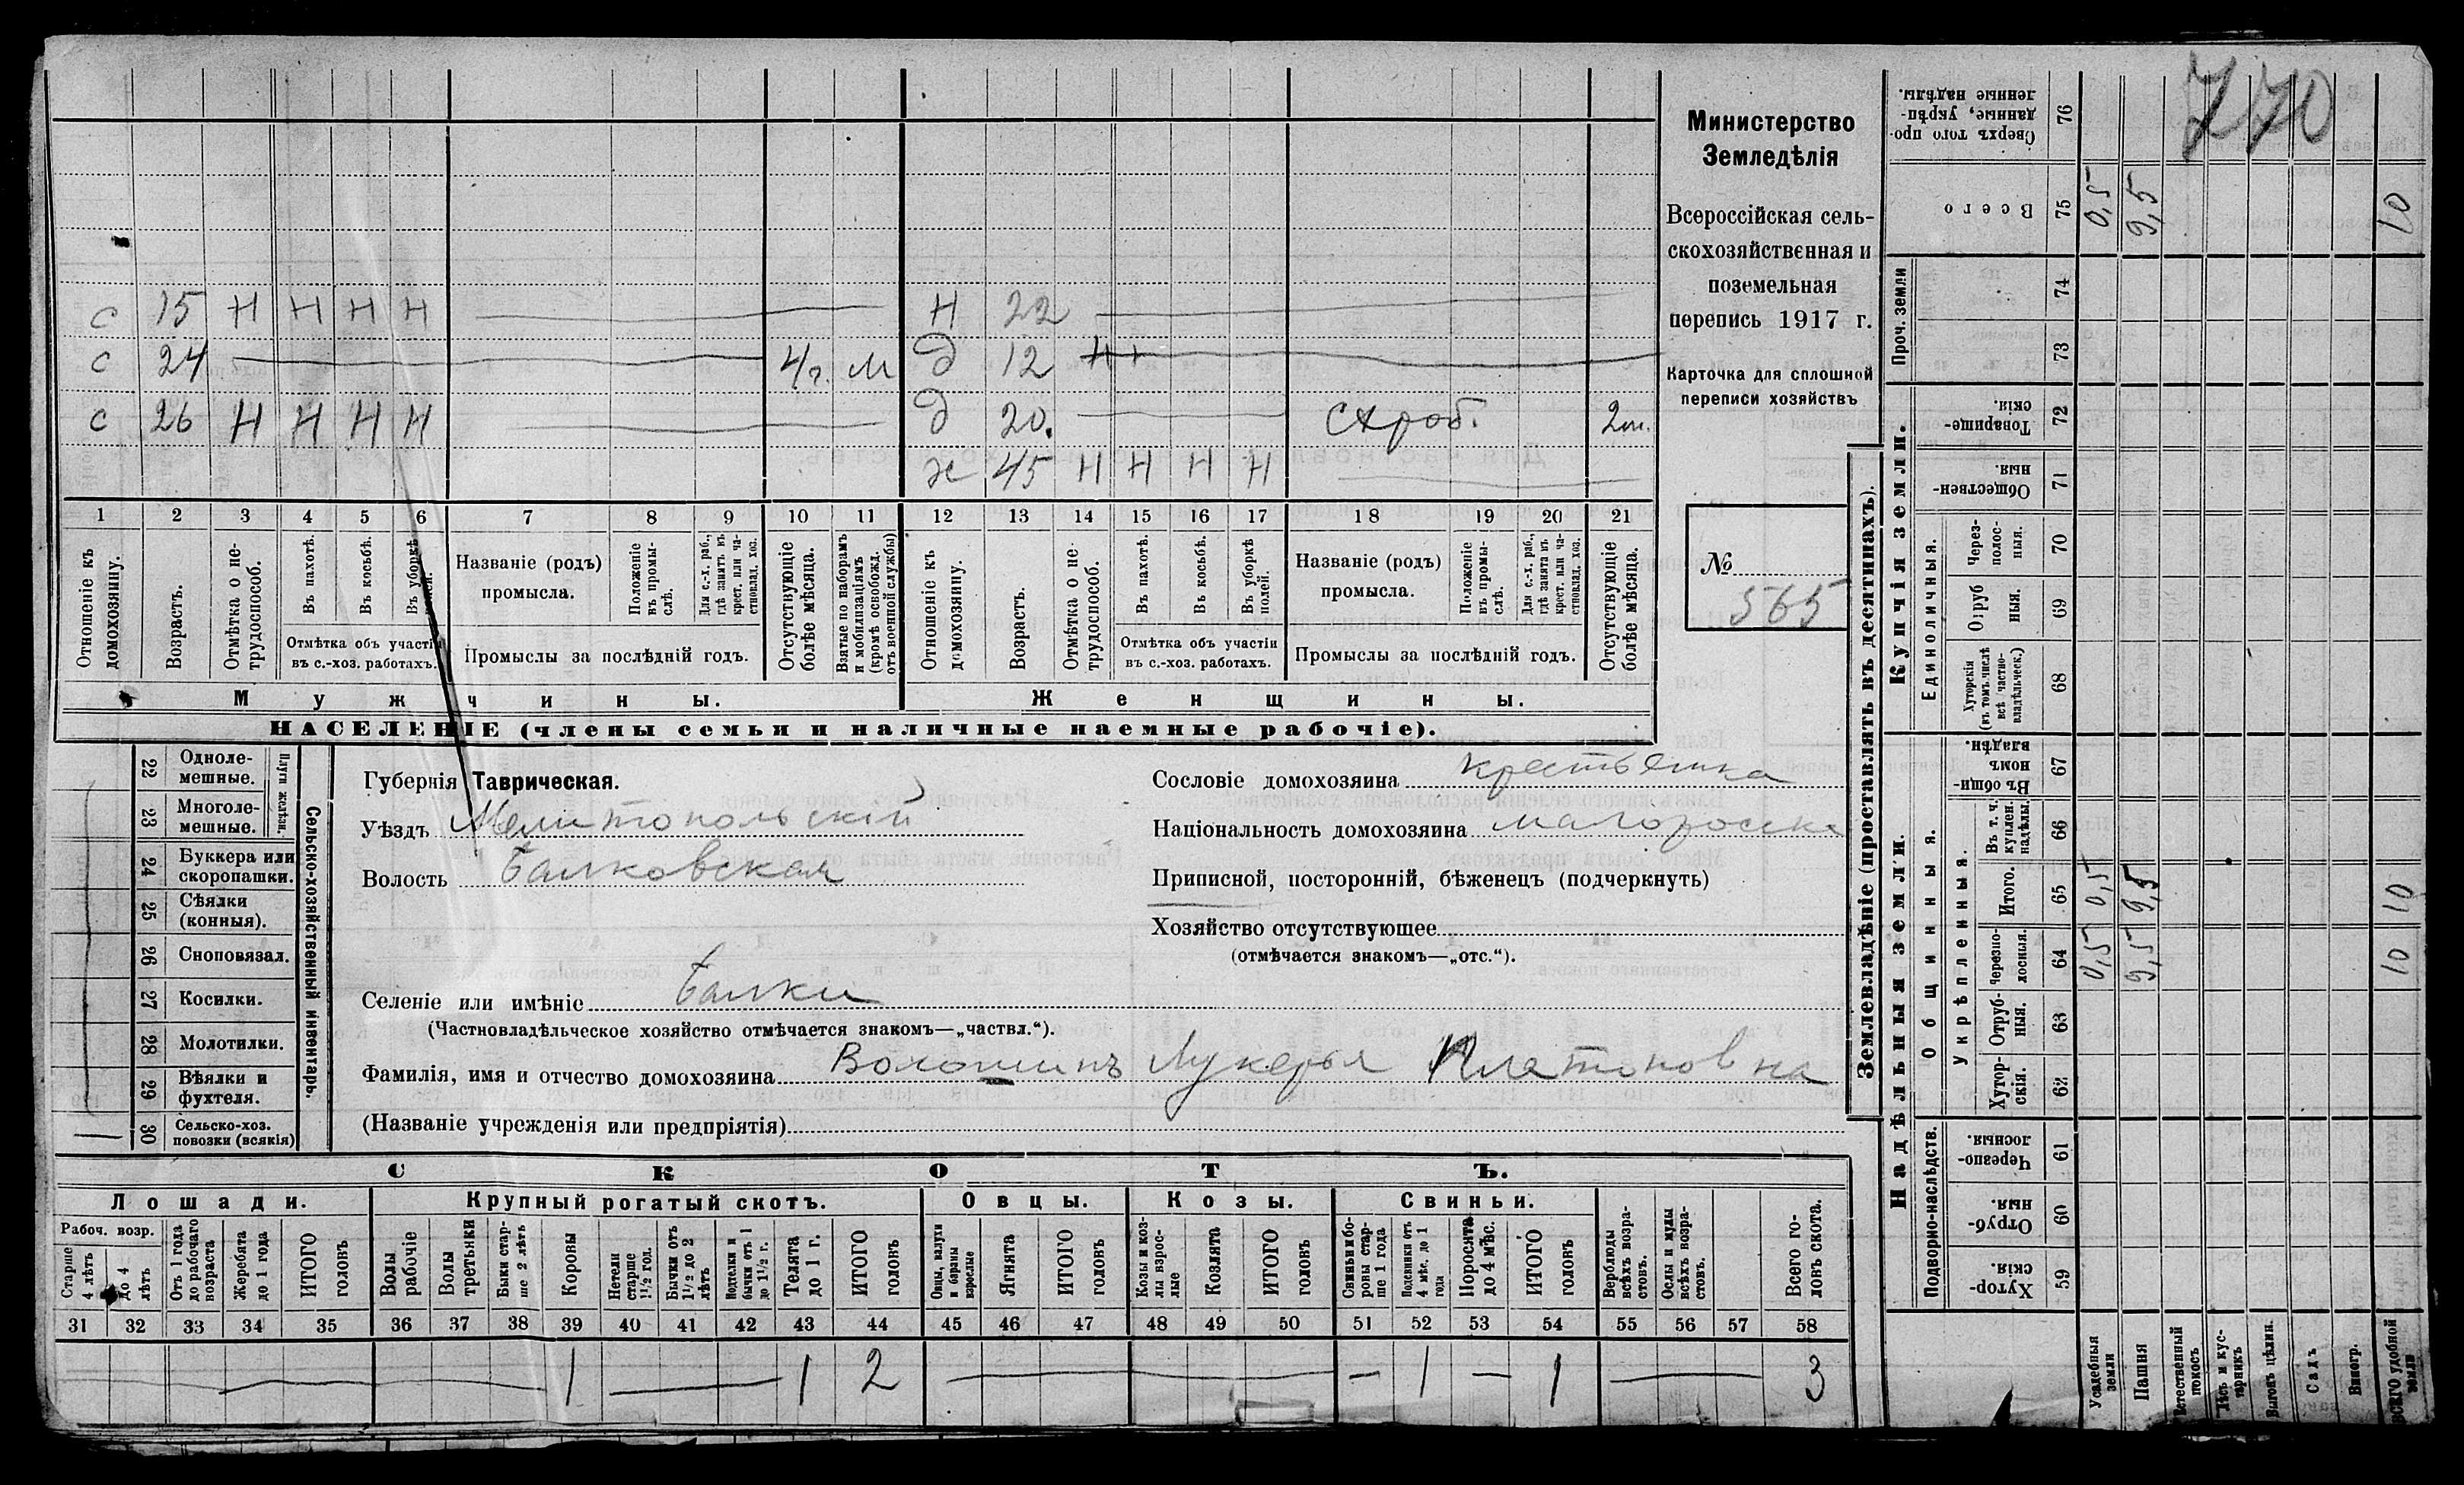 770
с 15 Н Н Н Н Н 22
с 24 4 г. м д 12 Н
с 26 Н Н Н Н д 20. 2 м.
ж 45 Н Н Н Н
1 2 3 4 5 6 7 8 9 10 11 12 13 14 15 16 17 18 19 20 21
Отношеніе къ домохозяину.
Возрастъ.
Отмѣтка о нетрудоспособ.
Въ пахотѣ.
Въ косьбѣ.
Въ уборкѣ полей.
Отмѣтка объ участіи въ с.-хоз. работахъ.
Названіе (родъ) промысла.
Положеніе въ промыслѣ.
Для с.-х. раб., гдѣ занятъ въ крест. или частновлад. хоз.
Промыслы за послѣдній годъ.
Отсутствующіе болѣе мѣсяца.
Взятые по наборамъ и мобилизаціямъ (кромѣ освобожд. отъ военной службы)
Отношеніе къ домохозяину.
Возрастъ.
Отмѣтка о нетрудоспособ.
Въ пахотѣ.
Въ косьбѣ.
Въ уборкѣ полей.
Отмѣтка объ участіи въ с.-хоз. работахъ.
Названіе (родъ) промысла.
Положеніе въ промыслѣ.
Для с.-х. раб., гдѣ занята въ крест. или частновлад. хоз.
Промыслы за послѣдній годъ.
Отсутствующіе болѣе мѣсяца.
Мужчины. Женщины.
НАСЕЛЕНІЕ (члены семьи и наличные наемные рабочіе).
Министерство
Земледѣлія
Всероссійская сель-
скохозяйственная и
поземельная
перепись 1917 г.
Карточка для сплошной
переписи хозяйствъ
№
565
22 Одноле-мешные.
23 Многоле-мешные.
Плуги желѣзн.
24 Буккера или скоропашки.
25 Сѣялки (конныя).
26 Сноповязал.
27 Косилки.
28 Молотилки.
29 Вѣялки и фухтеля.
30 Сельско-хоз. повозки (всякія)
Сельско-хозяйственный инвентарь.
Губернія Таврическая.
Уѣздъ Мелитопольскій
Волость Балковская
Сословіе домохозяина крестьянка
Національность домохозяина малоросска
Приписной, посторонній, бѣженецъ (подчеркнуть)
Хозяйство отсутствующее
(отмѣчается знакомъ—„отс.“).
Селеніе или имѣніе Балки
(Частновладѣльческое хозяйство отмѣчается знакомъ—„частвл.“).
Фамилія, имя и отчество домохозяина Волошинъ Лукерья Платоновна
(Названіе учрежденія или предпріятія)
СКОТЪ.
Лошади. Крупный рогатый скотъ. Овцы. Козы. Свиньи.
Рабоч. возр.
Старше 4 лѣтъ
до 4 лѣтъ
Отъ 1 года до рабочаго возраста
Жеребята до 1 года
ИТОГО головъ
Волы рабочіе
Волы третьяки
Быки старше 2 лѣтъ
Коровы
Нетели старше 1½ год.
Бычки отъ 1½ до 2 лѣтъ
Подтелки и бычки отъ 1 до 1½ г.
Телята до 1 г.
ИТОГО головъ
Овцы, валухи и бараны взрослые
Ягнята
ИТОГО головъ
Козы и козлы взрослые
Козлята
ИТОГО головъ
Свиньи и боровы старше 1 года
Подсвинки отъ 4 мѣс. до 1 года
Поросята до 4 мѣс.
ИТОГО головъ
Верблюды всѣхъ возрастовъ.
Ослы и мулы всѣхъ возрастовъ.
Всего головъ скота.
31 32 33 34 35 36 37 38 39 40 41 42 43 44 45 46 47 48 49 50 51 52 53 54 55 56 57 58
1 1 2 1 1 3
Землевладѣніе (проставлять въ десятинахъ).
Надѣльныя земли. Купчія земли. Проч. земли
Подворно-наслѣдств.
Общинныя.
Укрѣпленныя.
Единоличныя.
Хуторскія. 59
Отрубныя. 60
Черезполосныя. 61
Хуторскія. 62
Отрубныя. 63
Черезполосныя. 64
Итого. 65
Въ т. ч. куплен. надѣлы. 66
Въ общинномъ владѣн. 67
Хуторскія (въ томъ числѣ всѣ частновладѣльческ.) 68
Отрубныя. 69
Черезполосныя. 70
Общественныя. 71
Товарищескія. 72
73
74
Всего 75
Сверхъ того проданные, укрѣпленные надѣлы. 76
Усадебныя земли 0,5 0,5 0,5
Пашня 9,5 9,5 9,5
Естественный покосъ
Лѣсъ и кустарникъ
Выгонъ цѣлин.
Садъ
Виногр.
Всего удобной земли 10 10 10